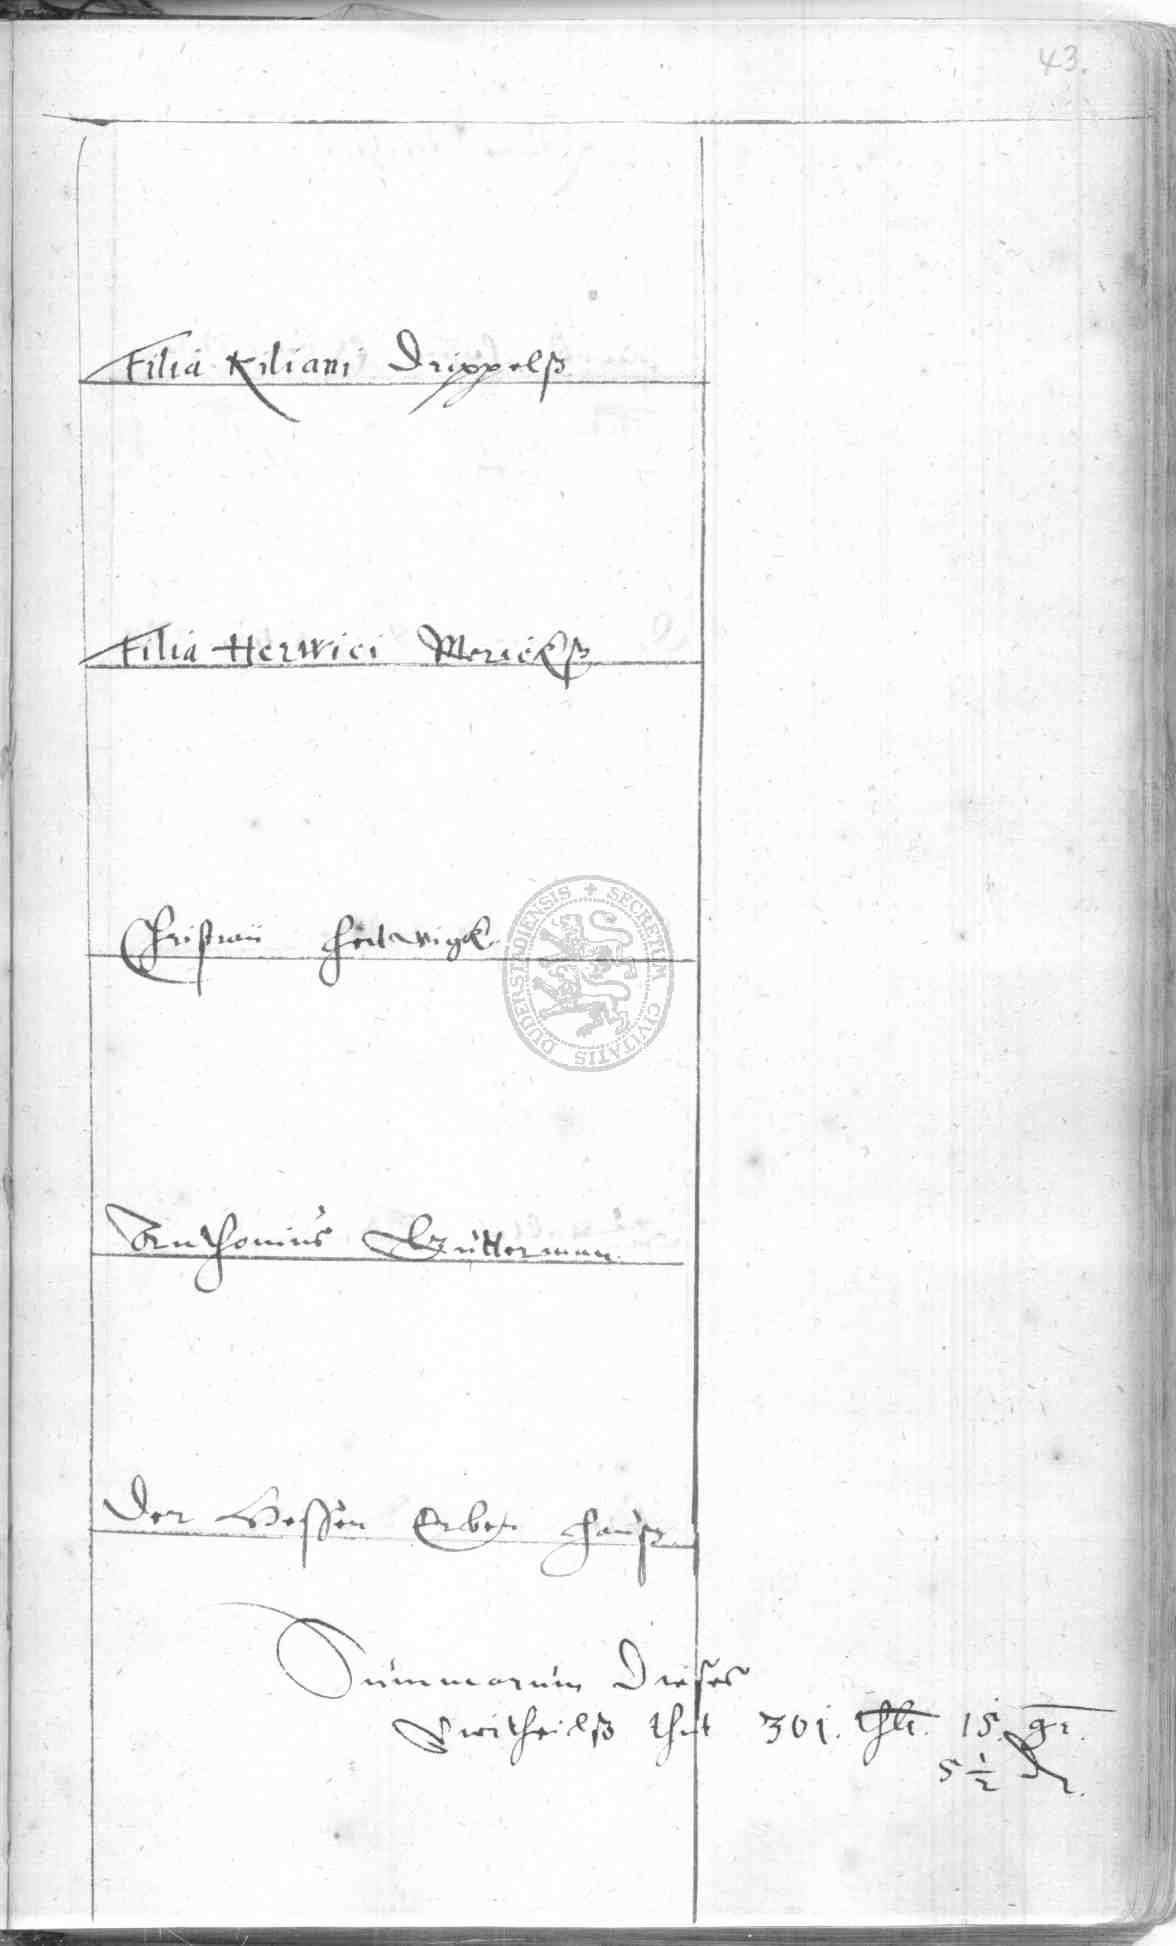 43.
Filia Kiliani Drippelß
Filia Herwici Merickß
Christian Hertwigk
Anthonius Gutterman
Der Hessen Erben Hauß
Summarum Dieses
thut 301. thlr. 15. gr.
5 1/2 d.
SECRETUM CIVITATIS DUDERSTADIENSIS